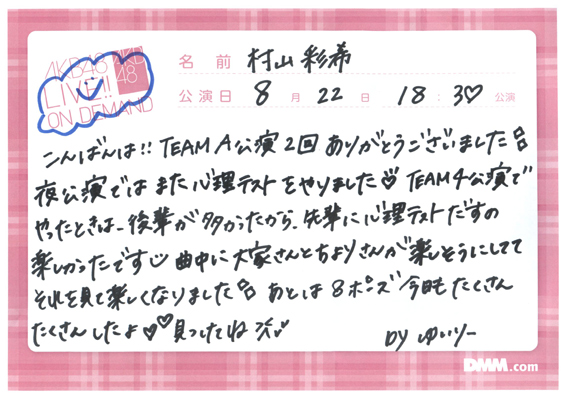 AKB48 LIVE!! ON DEMAND
AKB48
名前 村山彩希
公演日 8月22日 18:30公演
こんばんは!! TEAM A公演2回ありがとうございました
夜公演ではまた心理テストをやりました TEAM4公演で
やったときは、後輩が多かったから、先輩に心理テストだすの
楽しかったです 曲中に大家さんとちよりさんが楽しそうにしてて
それを見て楽しくなりました あとは8ポーズ今日もたくさん
たくさんしたよ♡♡見つけてね
by ゆいりー
DMM.com